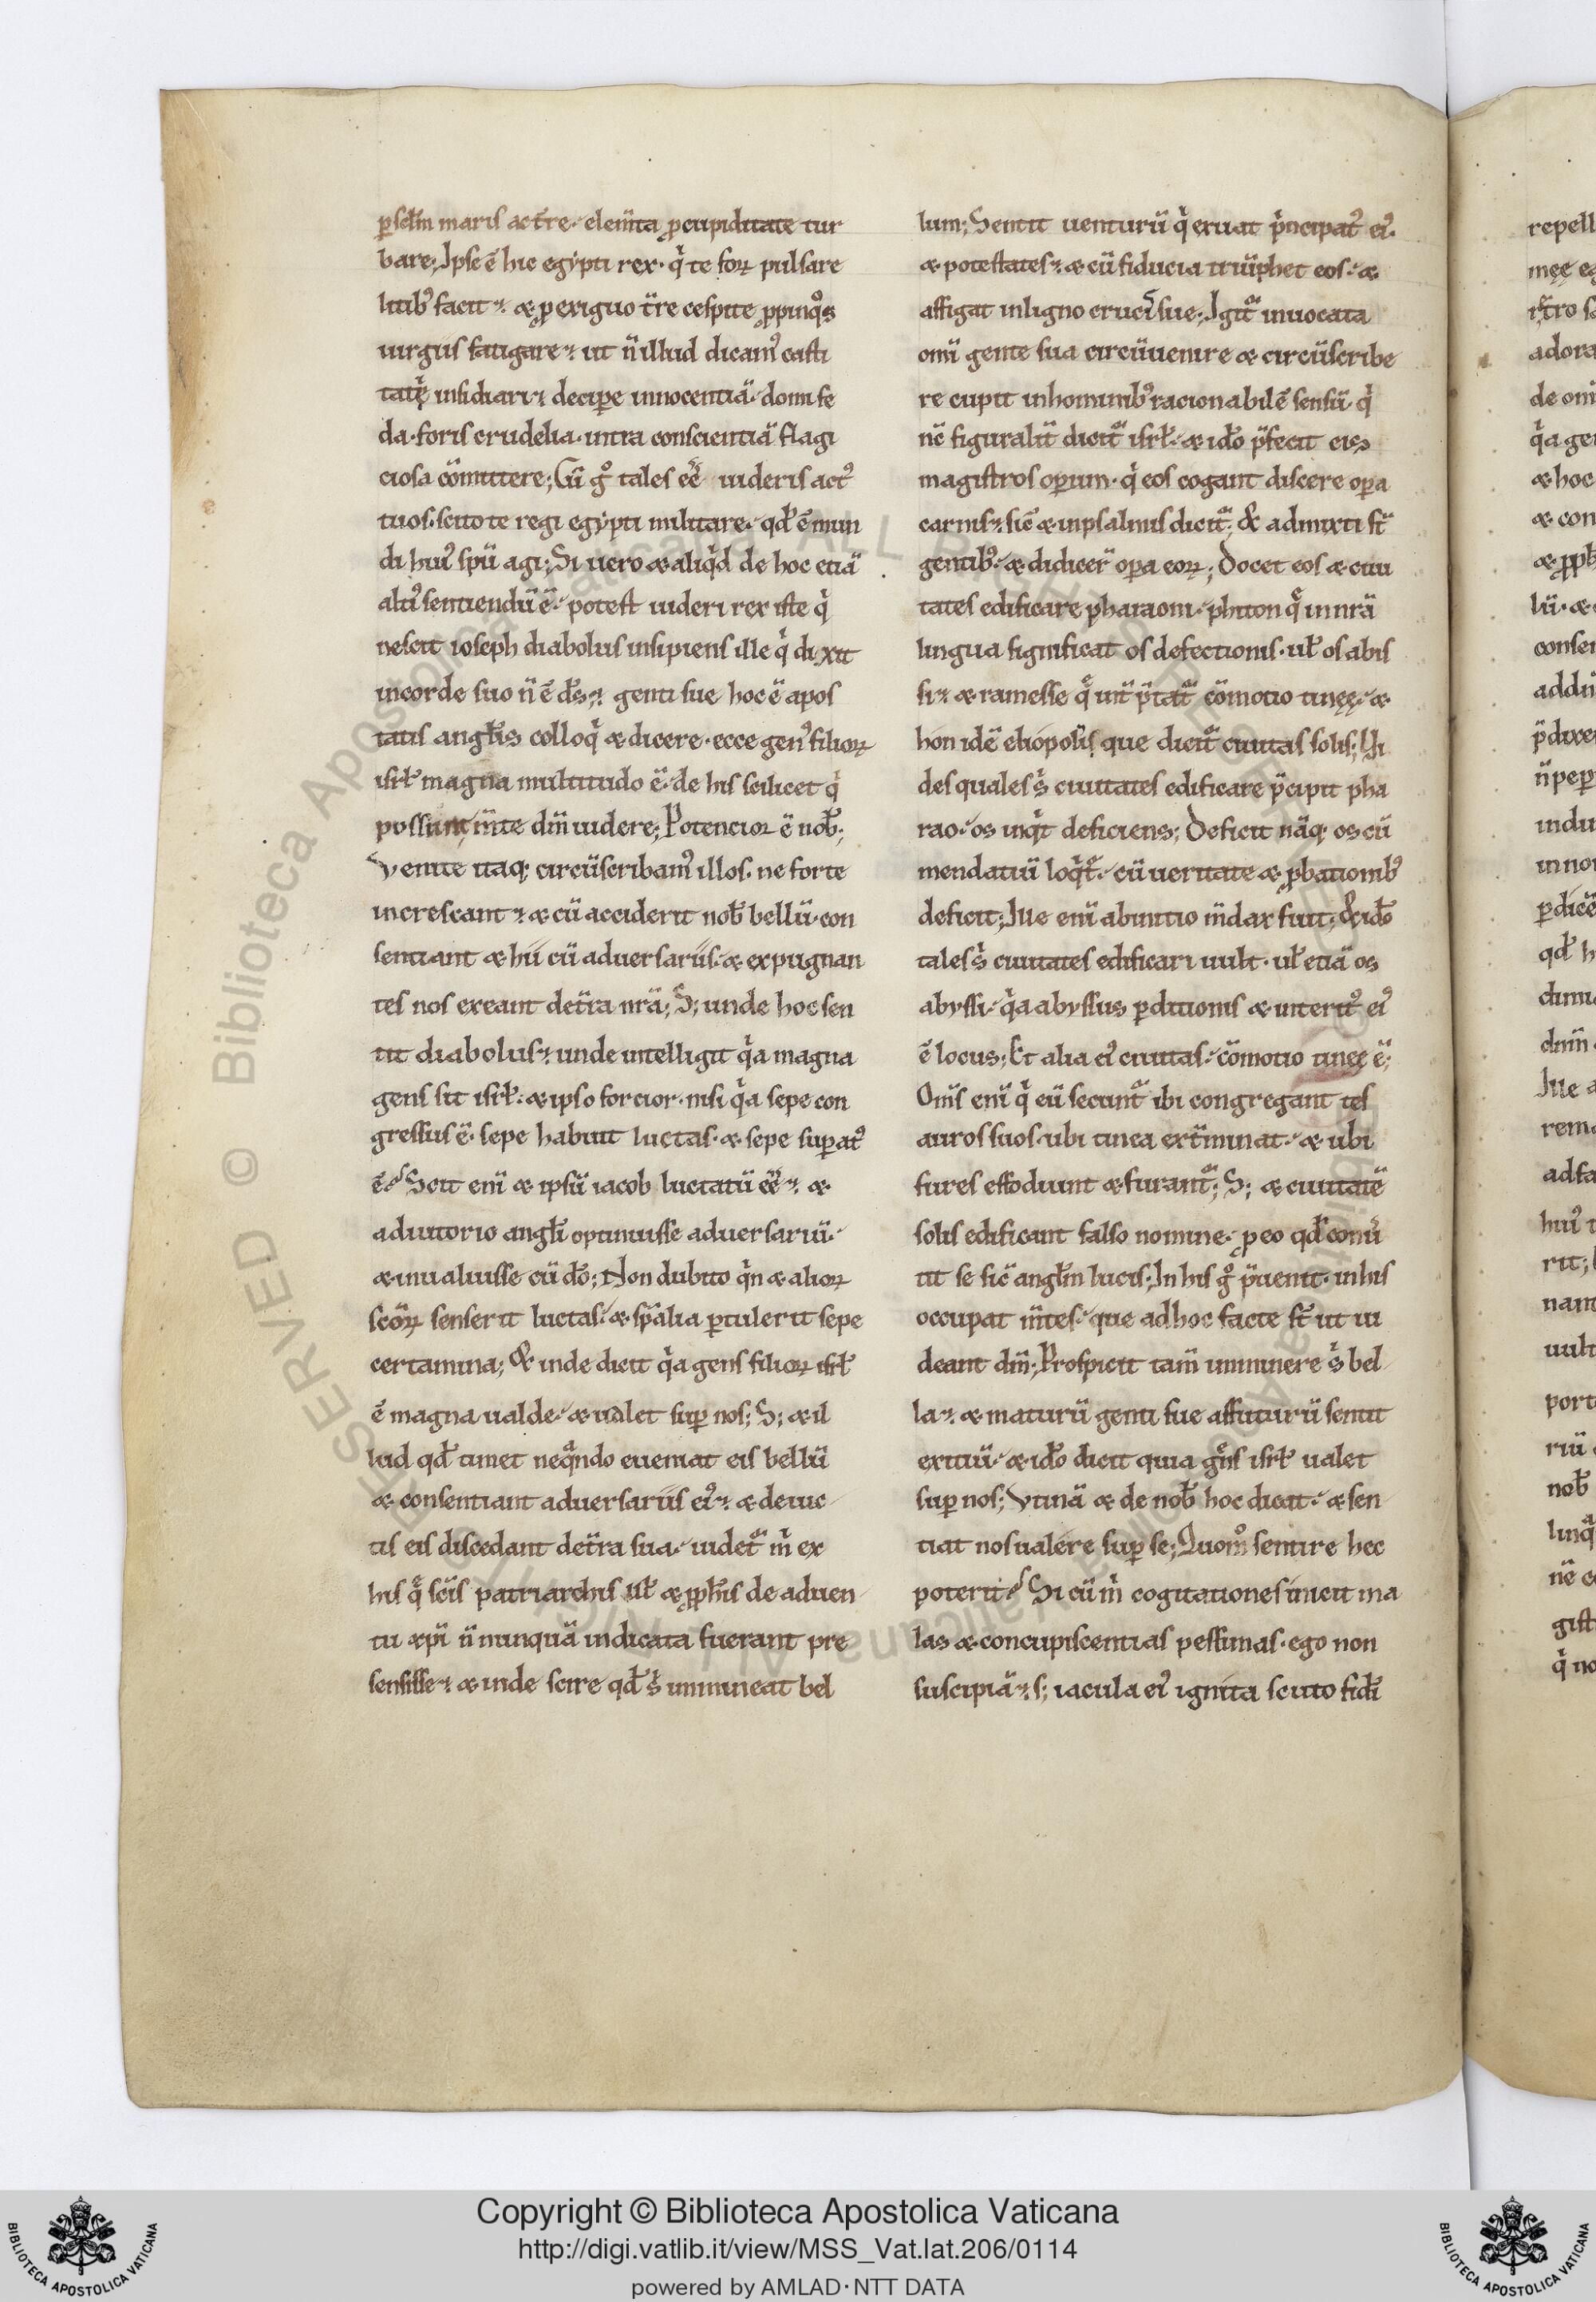 p̱ scłm maris ac t̄re· elem̄ta ꝓ cupiditate tur
bare; Ipse ē hic egẏpti rex· q̓ te foꝝ pulsare
litib᾽ facit· æ ꝓ exiguo t̄re cespite ꝓpinq᾽s
iurgiis fatigare· ut n̄ illud dicam᾽ casti
tati insidiari· decip̱e innocentiā· domi fe
da· foris crudelia· intra conscientiā flagi
ciosa cōmittere; Cū g̊ tales eē̄ uideris act᾽
tuos· scito te regi egẏpti militare· qđ ē mun
di hui᾽ spū agi; Si uero æ aliq̓d de hoc etiā
alti᾽ sentiendū ē· potest uideri rex iste q̓
nescit ioseph diabolus insipiens ille q̓ dixit
in corde suo n̄ ē dś· genti sue hoc ē apos
tatis angłis colloq̓ æ dicere· ecce gen᾽ filioꝝ
isrł magna multitudo ē· de his scilicet q̓
possunt m̄te dm̄ uidere; Potencior ē nob̄;
Venite itaq; circūscribam᾽ illos· ne forte
increscant· æ cū acciderit nob̄ bellū· con
sentiant æ hii cū aduersariis· æ expugnan
tes nos exeant de t̄ra nrā; S; unde hoc sen
tit diabolus· unde intelligit q̓a magna
gens sit isrł· æ ipso forcior· nisi q̓a sepe con
gressus ē· sepe habuit luctas· æ sepe sup̱at᾽
ē? Scit enī æ ipsū iacob luctatū eē̄· æ
adiutorio angłi optinuisse aduersariū·
æ inualuisse cū dō; Non dubito q̓n æ alioꝝ
scōꝝ senserit luctas· æ spālia p̱tulerit sepe
certamina; & inde dicit q̓a gens filioꝝ isrł
ē magna ualde· æ ualet sup̱ nos; S; æ il
lud qđ timet neq̃ndo eueniat eis bellū
æ consentiant aduersariis ei᾽· æ deuic
tis eis discedant de t̄ra sua· uidet̃ m̓ ex
his q̃ scīs patriarchis uł æ ꝓph̄is de aduen
tu æpī n̄ nunquā indicata fuerant pre
sensisse· æ inde scire qđ s̓ immineat bel
lum; Sentit uenturū q̓ exuat p̓ncipat᾽ ei᾽·
æ potestates· æ cū fiducia triūphet eos· æ
affigat in ligno crucis sue; Igit̃ inuocata
omī gente sua circūuenire æ circūscribe
re cupit in hominib᾽ racionabilē sensū q̓
nc̄ figuralit̄ dicit̃ isrł· æ idō p̄fecit eis
magistros op̱um· q̓ eos cogant discere op̱a
carnis· sic̄ æ in psalmis dicit̃· & admixti st̄
gentib᾽· æ didicer̄ op̱a eoꝝ; Docet eos æ ciui
tates edificare pharaoni· phiton q̃ in nrā
lingua significat os defectionis· uł os abis
si· æ ramesse q̃ int̄p̄tat̃ cōmotio tineę· æ
hon idē eliopolis que dicit̃ ciuitas solis; Ui
des quales s̓ ciuitates edificare p̄cipit pha
rao· os inq̓t deficiens; Deficit nāq; os cū
mendatiū loq̓t̃· cū ueritate æ ꝓbationib᾽
deficit; Ille enī ab initio m̄dax fuit; & idō
tales s̓ ciuitates edificari uult· uł etiā os
abyssi· q̓a abyssus p̱ditionis æ interit᾽ ei᾽
ē locus; Et alia ei᾽ ciuitas· cōmotio tineę ē;
Om̄s enī q̓ eū secunt̃ ibi congregant tes
auros suos· ubi tinea ext̄minat· æ ubi
fures effodiunt æ furant̃; S; æ ciuitatē
solis edificant falso nomine· ꝓ eo qđ conu̓
tit se sic̄ angłm lucis; In his g̊ p̄uenit· in his
occupat m̄tes· que ad hoc facte st̄ ut ui
deant dm̄; Prospicit tam̄ imminere s̓ bel
la· æ maturū genti sue affuturū sentit
exitiū· æ idō dicit quia gēns isrł ualet
sup̱ nos; Vtinā æ de nob̄ hoc dicat· æ sen
tiat nos ualere sup̱ se; Quom̊ sentire hec
poterit? Si cū m̓ cogitationes inicit ma
las æ concupiscentias pessimas· ego non
suscipiā· s; iacula ei᾽ ignita scuto fidī
Copyright © Biblioteca Apostolica Vaticana
http://digi.vatlib.it/view/MSS_Vat.lat.206/0114
powered by AMLAD·NTT DATA